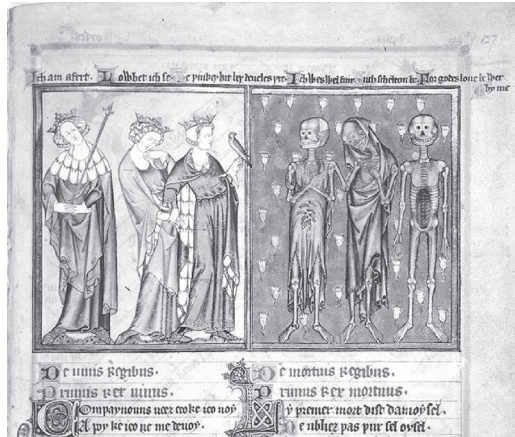 127
Ich am afert. Lo whet ich se. Me þinkeþ hit bey deueles þre. Ich wes wel fair. Such scheltou be. For godes loue be wer
by me
De uiuis regibus.
Primus rex uiuus.
Compaynouns ueez ceo ke ieo uoy
A poy ke ieo ne me deuoy.
De mortuis regibus.
Primus rex mortuus.
Ly premer mort dist damoysel.
Ne ubliez pas sul oysel.